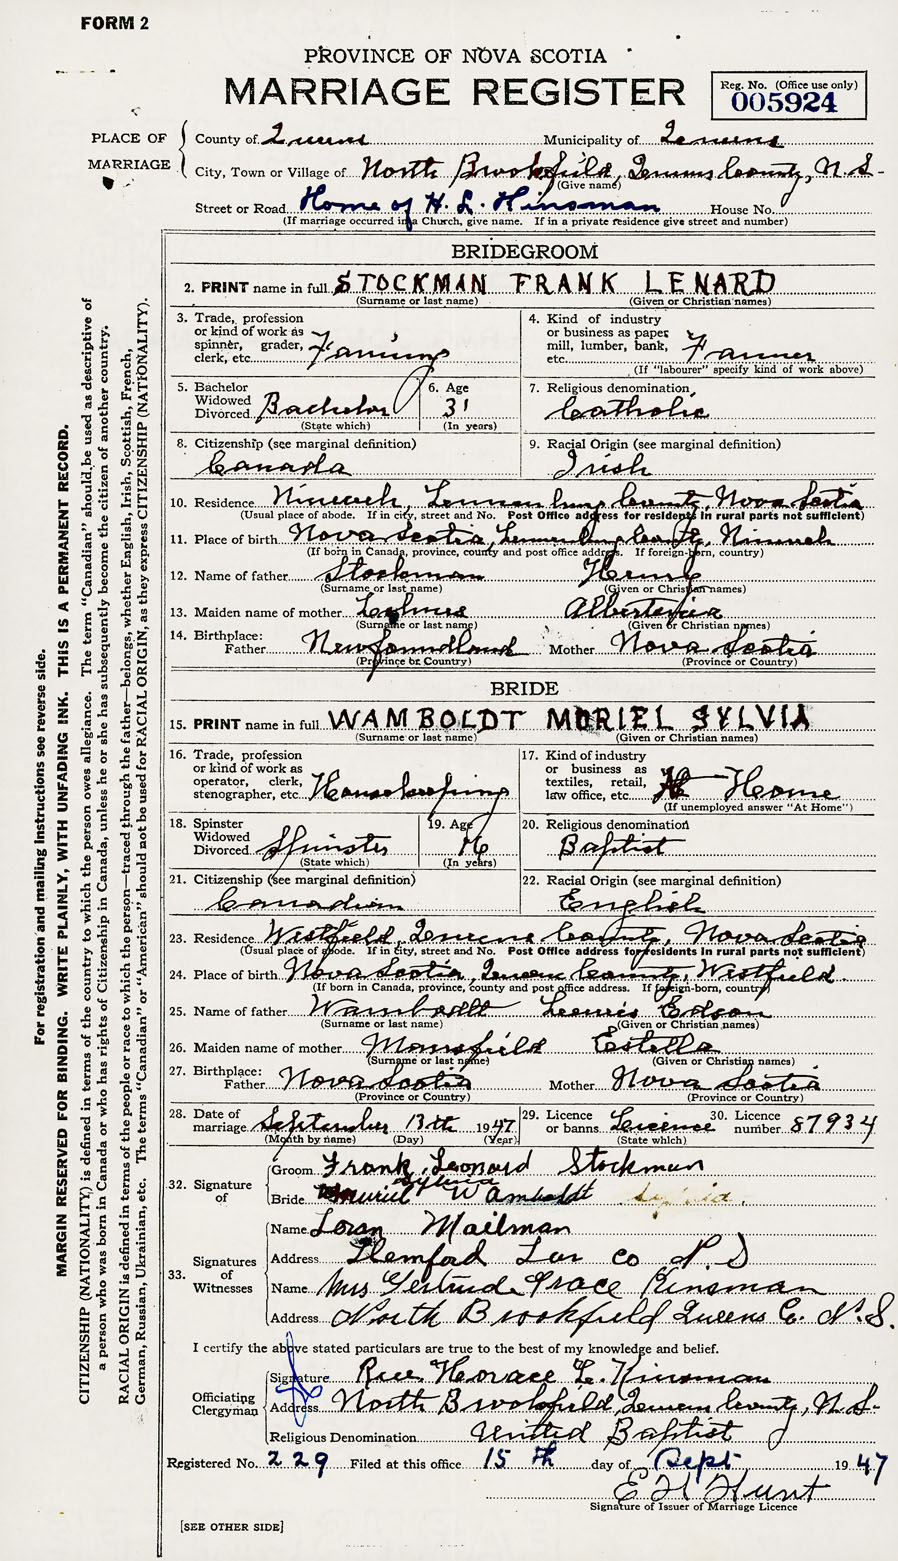 FORM 2
PROVINCE OF NOVA SCOTIA
MARRIAGE REGISTER
Reg. No. (Office use only)
005924
PLACE OF MARRIAGE
County of Queens Municipality of Queens
City, Town or Village of North Brookfield, Queens County, N.S.
(Give name)
Street or Road Home of H. L. Kinsman House No.
(If marriage occurred in a Church, give name. If in a private residence give street and number)
BRIDEGROOM
2. PRINT name in full STOCKMAN FRANK LENARD
(Surname or last name) (Given or Christian names)
3. Trade, profession or kind of work as spinner, grader, clerk, etc. Farming
4. Kind of industry or business as paper mill, lumber, bank, etc. Farmer
(If "labourer" specify kind of work above)
5. Bachelor Widowed Divorced Bachelor
(State which)
6. Age 31
(In years)
7. Religious denomination
Catholic
8. Citizenship (see marginal definition)
Canada
9. Racial Origin (see marginal definition)
Irish
10. Residence Lunenburg County, Nova Scotia
(Usual place of abode. If in city, street and No. Post Office address for residents in rural parts not sufficient)
11. Place of birth Nova Scotia, Lunenburg County,
(If born in Canada, province, county and post office address. If foreign-born, country)
12. Name of father Stockman Henry
(Surname or last name) (Given or Christian names)
13. Maiden name of mother
(Surname or last name) (Given or Christian names)
14. Birthplace:
Father Newfoundland Mother Nova Scotia
(Province or Country) (Province or Country)
BRIDE
15. PRINT name in full WAMBOLDT MURIEL SYLVIA
(Surname or last name) (Given or Christian names)
16. Trade, profession or kind of work as operator, clerk, stenographer, etc. Housekeeping
17. Kind of industry or business as textiles, retail, law office, etc. At Home
(If unemployed answer "At Home")
18. Spinster Widowed Divorced Spinster
(State which)
19. Age 16
(In years)
20. Religious denomination
Baptist
21. Citizenship (see marginal definition)
Canadian
22. Racial Origin (see marginal definition)
English
23. Residence Westfield, Queens County, Nova Scotia
(Usual place of abode. If in city, street and No. Post Office address for residents in rural parts not sufficient)
24. Place of birth Nova Scotia, Queens County, Westfield.
(If born in Canada, province, county and post office address. If foreign-born, country)
25. Name of father Wamboldt Lewis Edson
(Surname or last name) (Given or Christian names)
26. Maiden name of mother Mansfield Estella
(Surname or last name) (Given or Christian names)
27. Birthplace:
Father Nova Scotia Mother Nova Scotia
(Province or Country) (Province or Country)
28. Date of marriage September 13th 1947
(Month by name) (Day) (Year)
29. Licence or banns Licence
(State which)
30. Licence number 87934
32. Signature of
Groom Frank Leonard Stockman
Bride Muriel Sylvia Wamboldt Sylvia.
33. Signatures of Witnesses
Name Loran Mailman
Address Hemford Lun Co N.S
Name Mrs Gertrude Grace Kinsman
Address North Brookfield Queens Co. N.S.
I certify the above stated particulars are true to the best of my knowledge and belief.
Officiating Clergyman
Signature Rev Horace L. Kinsman
Address North Brookfield, Queens County, N.S.
Religious Denomination United Baptist
Registered No. 229 Filed at this office 15th day of Sept 1947
E H Hunt
Signature of Issuer of Marriage Licence
[SEE OTHER SIDE]
For registration and mailing instructions see reverse side.
MARGIN RESERVED FOR BINDING. WRITE PLAINLY, WITH UNFADING INK. THIS IS A PERMANENT RECORD.
CITIZENSHIP (NATIONALITY) is defined in terms of the country to which the person owes allegiance. The term "Canadian" should be used as descriptive of
a person who was born in Canada or who has rights of Citizenship in Canada, unless he or she has subsequently become the citizen of another country.
RACIAL ORIGIN is defined in terms of the people or race to which the person—traced through the father—belongs, whether English, Irish, Scottish, French,
German, Russian, Ukrainian, etc. The terms "Canadian" or "American" should not be used for RACIAL ORIGIN, as they express CITIZENSHIP (NATIONALITY).